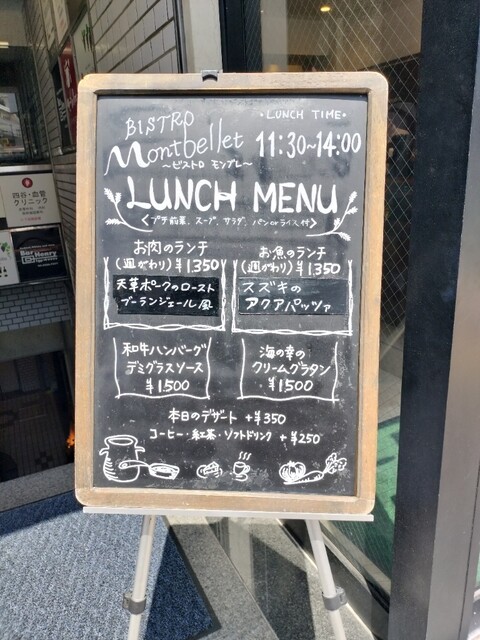 BISTRO
Montbellet
〜ビストロ モンブレ〜
・LUNCH TIME・
11:30〜14:00
LUNCH MENU
〈プチ前菜、スープ、サラダ、パンorライス付〉
お肉のランチ
(週がわり) ¥1,350
天草ポークのロースト
ブーランジェール風
お魚のランチ
(週がわり) ¥1,350
スズキの
アクアパッツァ
和牛ハンバーグ
デミグラスソース
¥1,500
海の幸の
クリームグラタン
¥1,500
本日のデザート +¥350
コーヒー・紅茶・ソフトドリンク +¥250
四谷・血管
クリニック
Bar
Henry